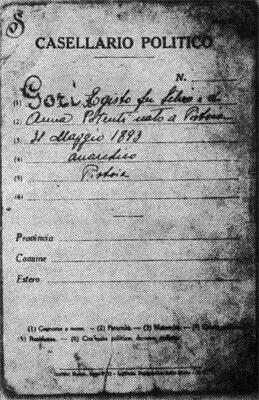 S
CASELLARIO POLITICO
N.
(1) Gozi Egisto fu
(2) Anna Potenti nato a Pistoia
(3) 21 Maggio 1893
(4) anarchico
(5) Pistoia
(6)
Provincia
Comune
Estero
(1) Cognome e nome. - (2) Paternità. - (3) Maternità. - (4)
(5) Residenza. - (6)